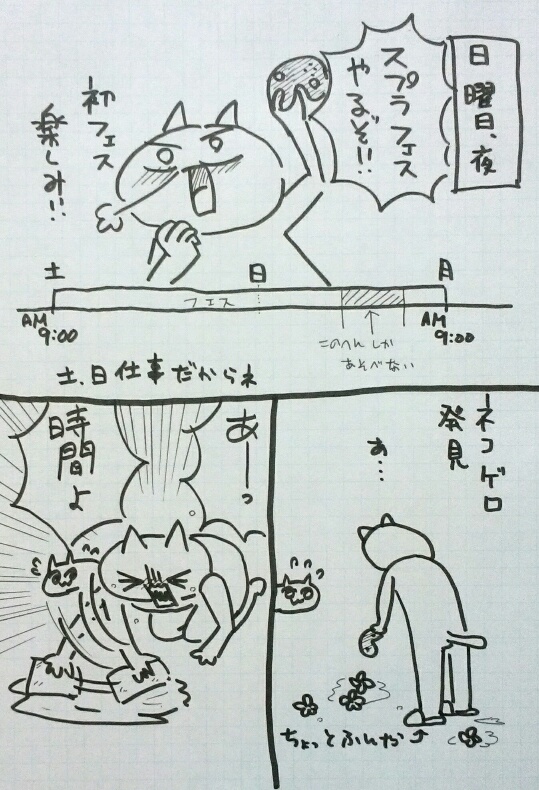 日曜日、夜
スプラフェス
やるぞ!!
初フェス
楽しみ!!
土
日
月
フェス
AM
9:00
AM
9:00
このへんしか
あそべない
土、日仕事だからネ
ネコゲロ
発見
あ…
ちょっとふんだ
あーっ
時間よ